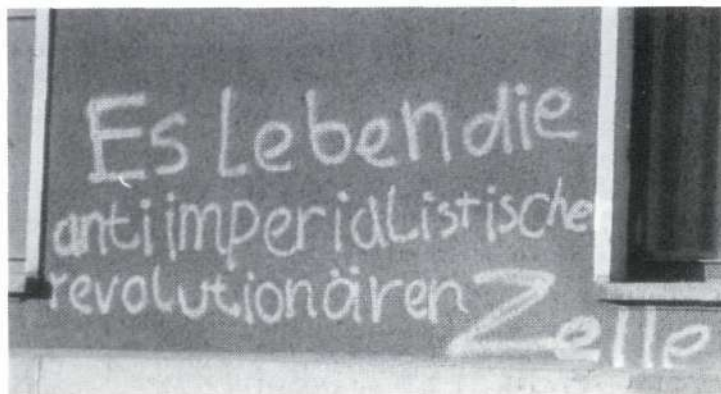 Es Leben die
antiimperialistischen
revolutionären Zelle